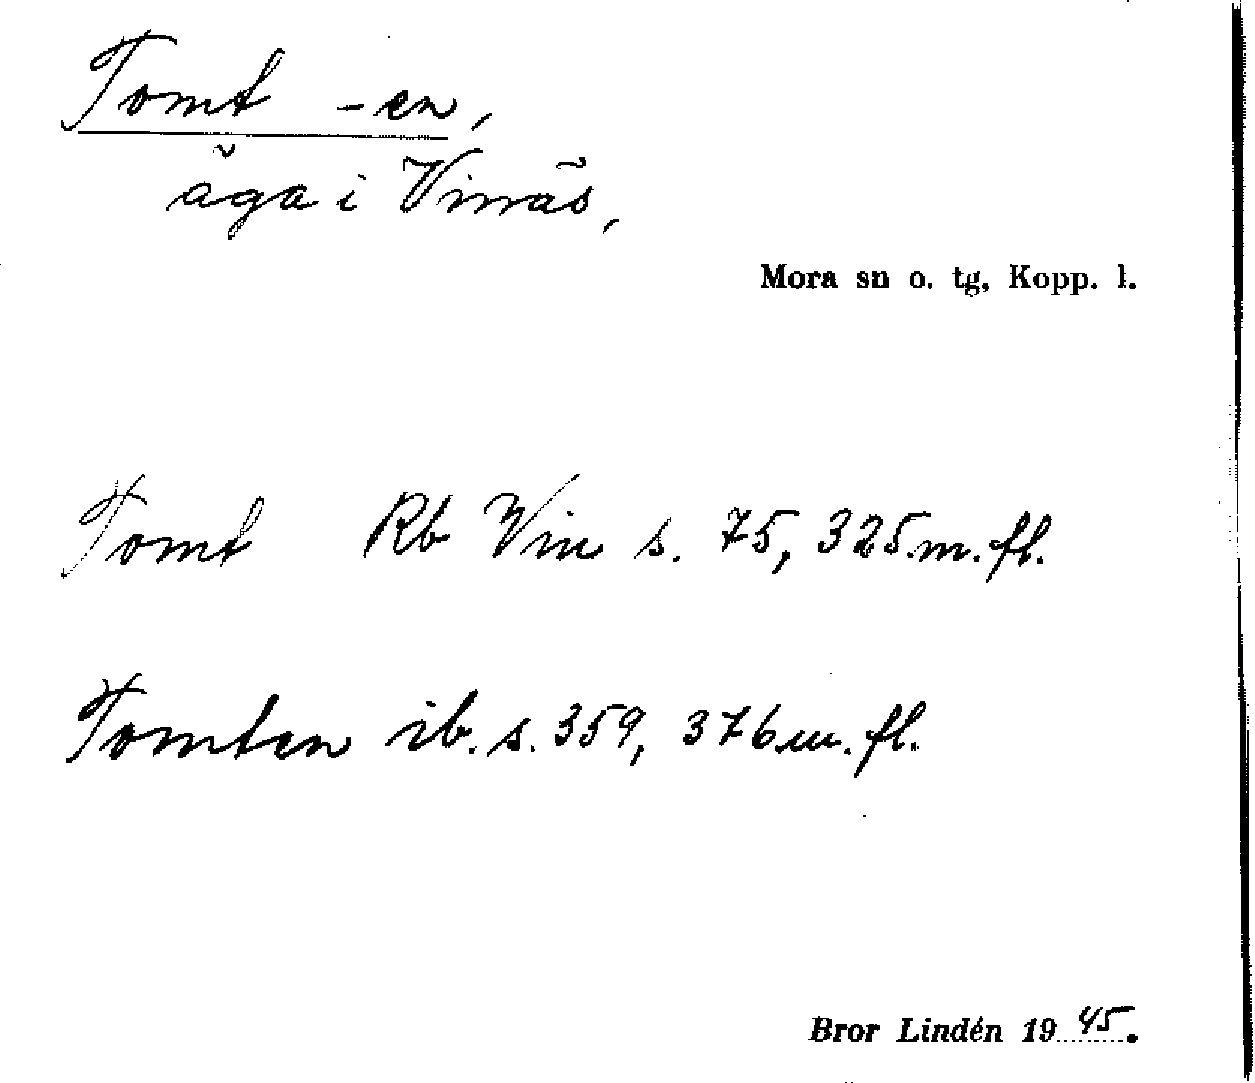 Tomt -en,
äga i Vinäs,
Mora sn o. tg, Kopp. l.
Tomt Rb Vin s. 75, 325 m. fl.
Tomten ib. s. 359, 376 m. fl.
Bror Lindén 1945.